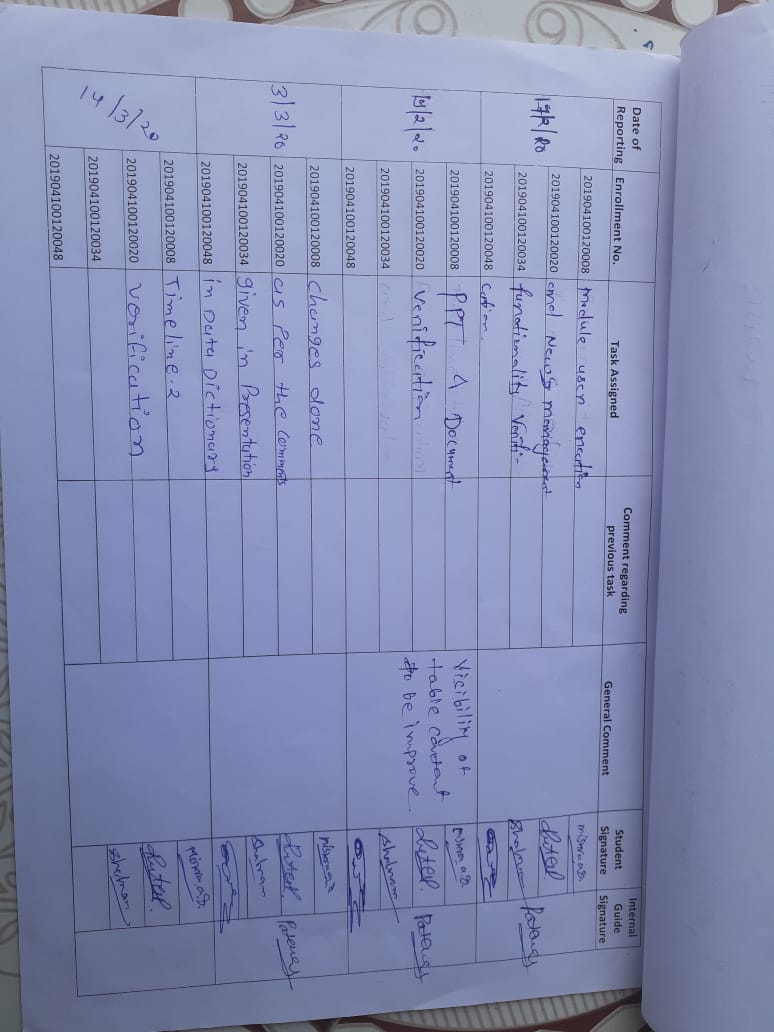 Date of Reporting Enrollment No. Task Assigned Comment regarding previous task General Comment Student Signature Internal Guide Signature
201904100120008 module user
17/2/20 201904100120020 and News management
201904100120034 functionality Verifi-
201904100120048 cation.
201904100120008 PPT & Document Visibility of
19/2/20 201904100120020 Verification table content
201904100120034 to be improve.
201904100120048
201904100120008 changes done
3/3/20 201904100120020 as per the comments
201904100120034 given in Presentation
201904100120048 in Data Dictionary
201904100120008 Timeline-2
14/3/20 201904100120020 Verification
201904100120034
201904100120048